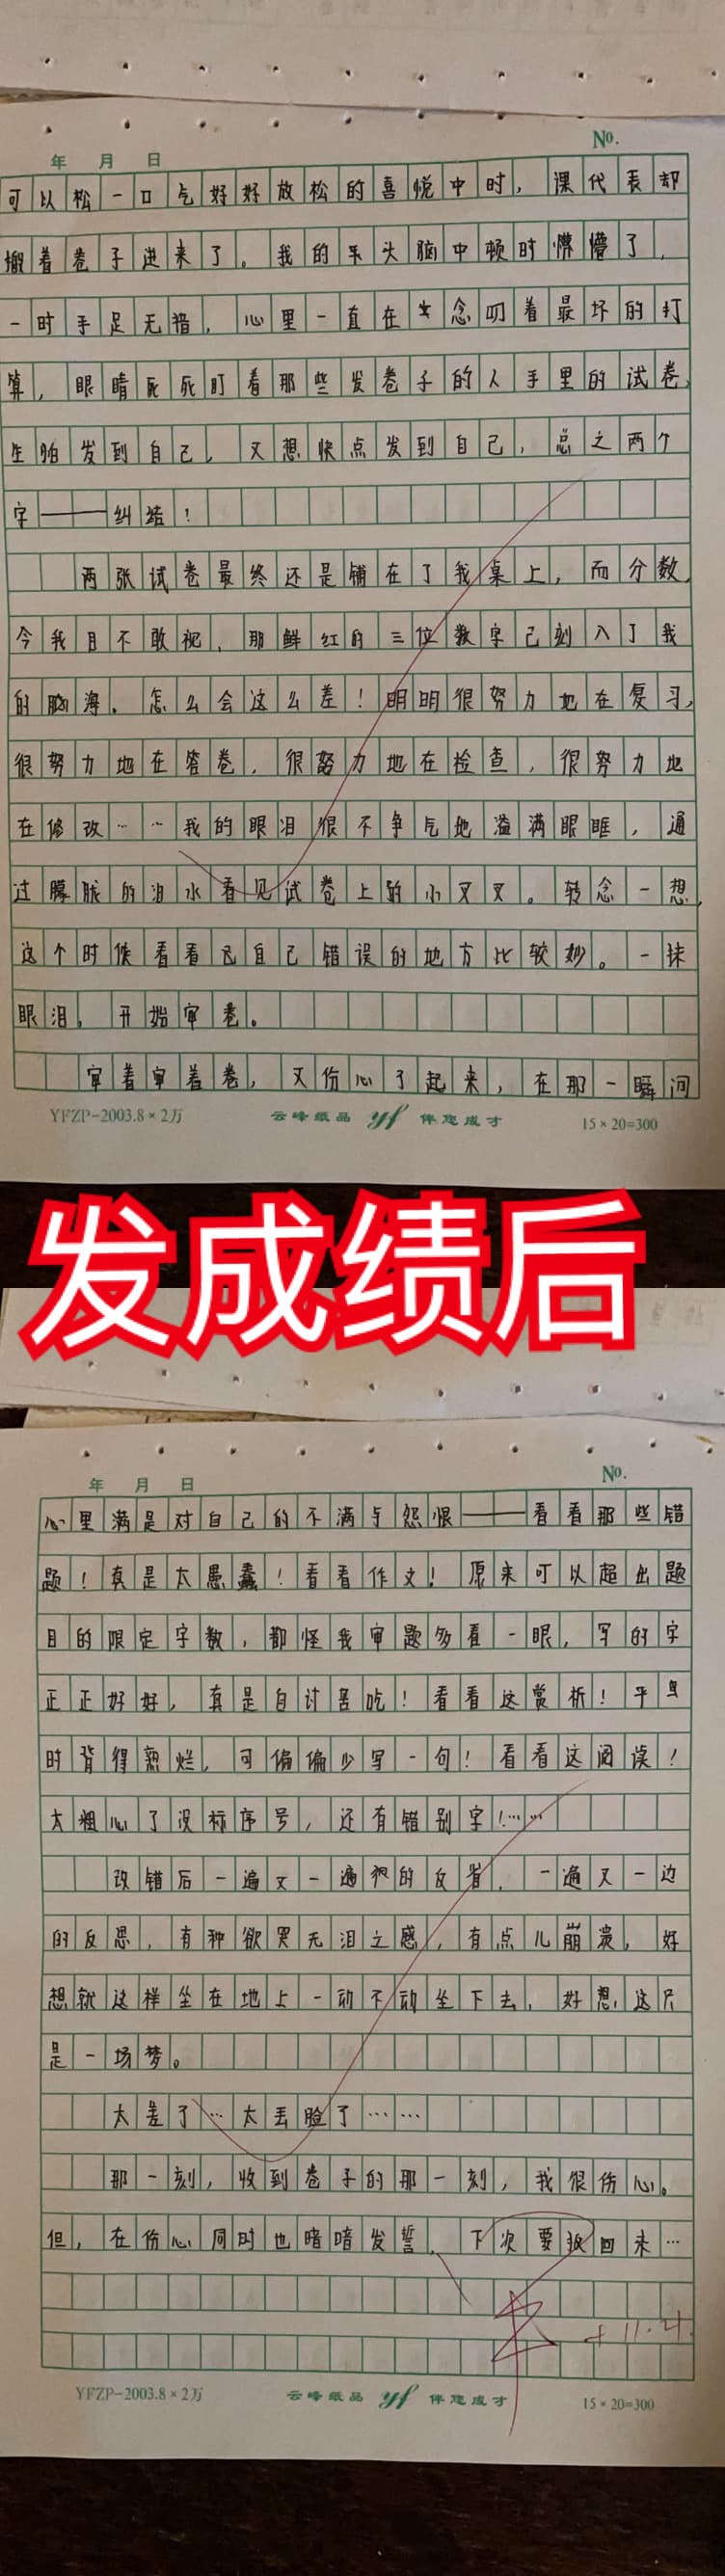 No.
年 月 日
可以松一口气好好放松的喜悦中时，课代表却
搬着卷子进来了。我的呆头脑中顿时懵懵了，
一时手足无措，心里一直在念叨着最坏的打
算，眼睛死死盯着那些发卷子的人手里的试卷，
生怕发到自己，又想快点发到自己，总之两个
字——纠结！
两张试卷最终还是铺在了我桌上，而分数，
令我目不敢视，那鲜红的三位数字已刻入了我
的脑海。怎么会这么差！明明很努力地在复习，
很努力地在答卷，很努力地在检查，很努力地
在修改……我的眼泪很不争气地溢满眼眶，通
过朦胧的泪水看见试卷上的小叉叉。转念一想，
这个时候看看自己错误的地方比较妙。一抹
眼泪，开始审卷。
审着审着卷，又伤心了起来，在那一瞬间
YFZP-2003.8×2万 云峰纸品 yf 伴您成才 15×20=300
发成绩后
No.
年 月 日
心里满是对自己的不满与怨恨——看看那些错
题！真是太愚蠢！看看作文！原来可以超出题
目的限定字数，都怪我审题多看一眼，写的字
正正好好，真是自讨苦吃！看看这赏析！平
时背得熟烂，可偏偏少写一句！看看这阅读！
太粗心了没标序号，还有错别字！……
改错后一遍又一遍的反省，一遍又一边
的反思，有种欲哭无泪之感，有点儿崩溃，好
想就这样坐在地上一动不动坐下去，好想这只
是一场梦。
太差了…太丢脸了……
那一刻，收到卷子的那一刻，我很伤心。
但，在伤心同时也暗暗发誓，下次要扳回来…
11.21
YFZP-2003.8×2万 云峰纸品 yf 伴您成才 15×20=300